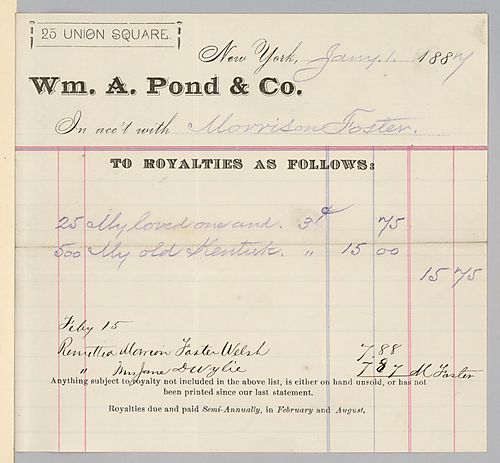 25 UNION SQUARE.
New York, Jany. 1. 1887
Wm. A. Pond & Co.
In acc't with Morrison Foster.
TO ROYALTIES AS FOLLOWS:
25 My loved one and. 3¢ 75
500 My old Kentuk. " 15 00
15 75
Feby 15
Remitted Morrison Foster Welsh 7.88
" Mrs Jane D Wylie 7 87 M Foster
Anything subject to royalty not included in the above list, is either on hand unsold, or has not
been printed since our last statement.
Royalties due and paid Semi-Annually, in February and August.